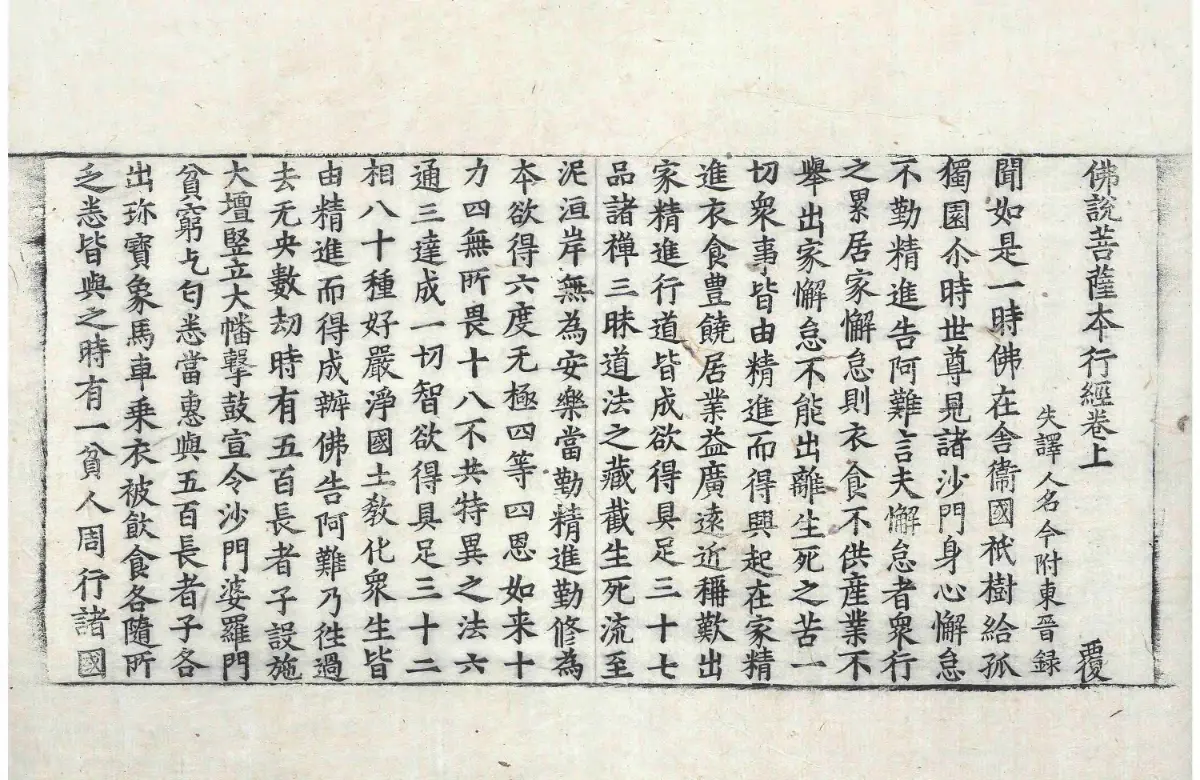 佛說菩薩本行經卷上　覆
失譯人名今附東晉録
聞如是一時佛在舍衞國祇樹給孤
獨園尒時世尊見諸沙門身心懈怠
不勤精進告阿難言夫懈怠者衆行
之累居家懈怠則衣食不供産業不
舉出家懈怠不能出離生死之苦一
切衆事皆由精進而得興起在家精
進衣食豊饒居業益廣遠近稱歎出
家精進行道皆成欲得具足三十七
品諸禅三昧道法之藏截生死流至
泥洹岸無為安樂當勤精進勤修為
本欲得六度无極四等四恩如来十
力四無所畏十八不共特異之法六
通三達成一切智欲得具足三十二
相八十種好嚴淨國土教化衆生皆
由精進而得成辦佛告阿難乃徃過
去无央數劫時有五百長者子設施
大壇竪立大幡擊鼓宣令沙門婆羅門
貧窮乞匃悉當惠與五百長者子各
出珎寶象馬車乗衣被飲食各隨所
乏悉皆與之時有一貧人周行諸國